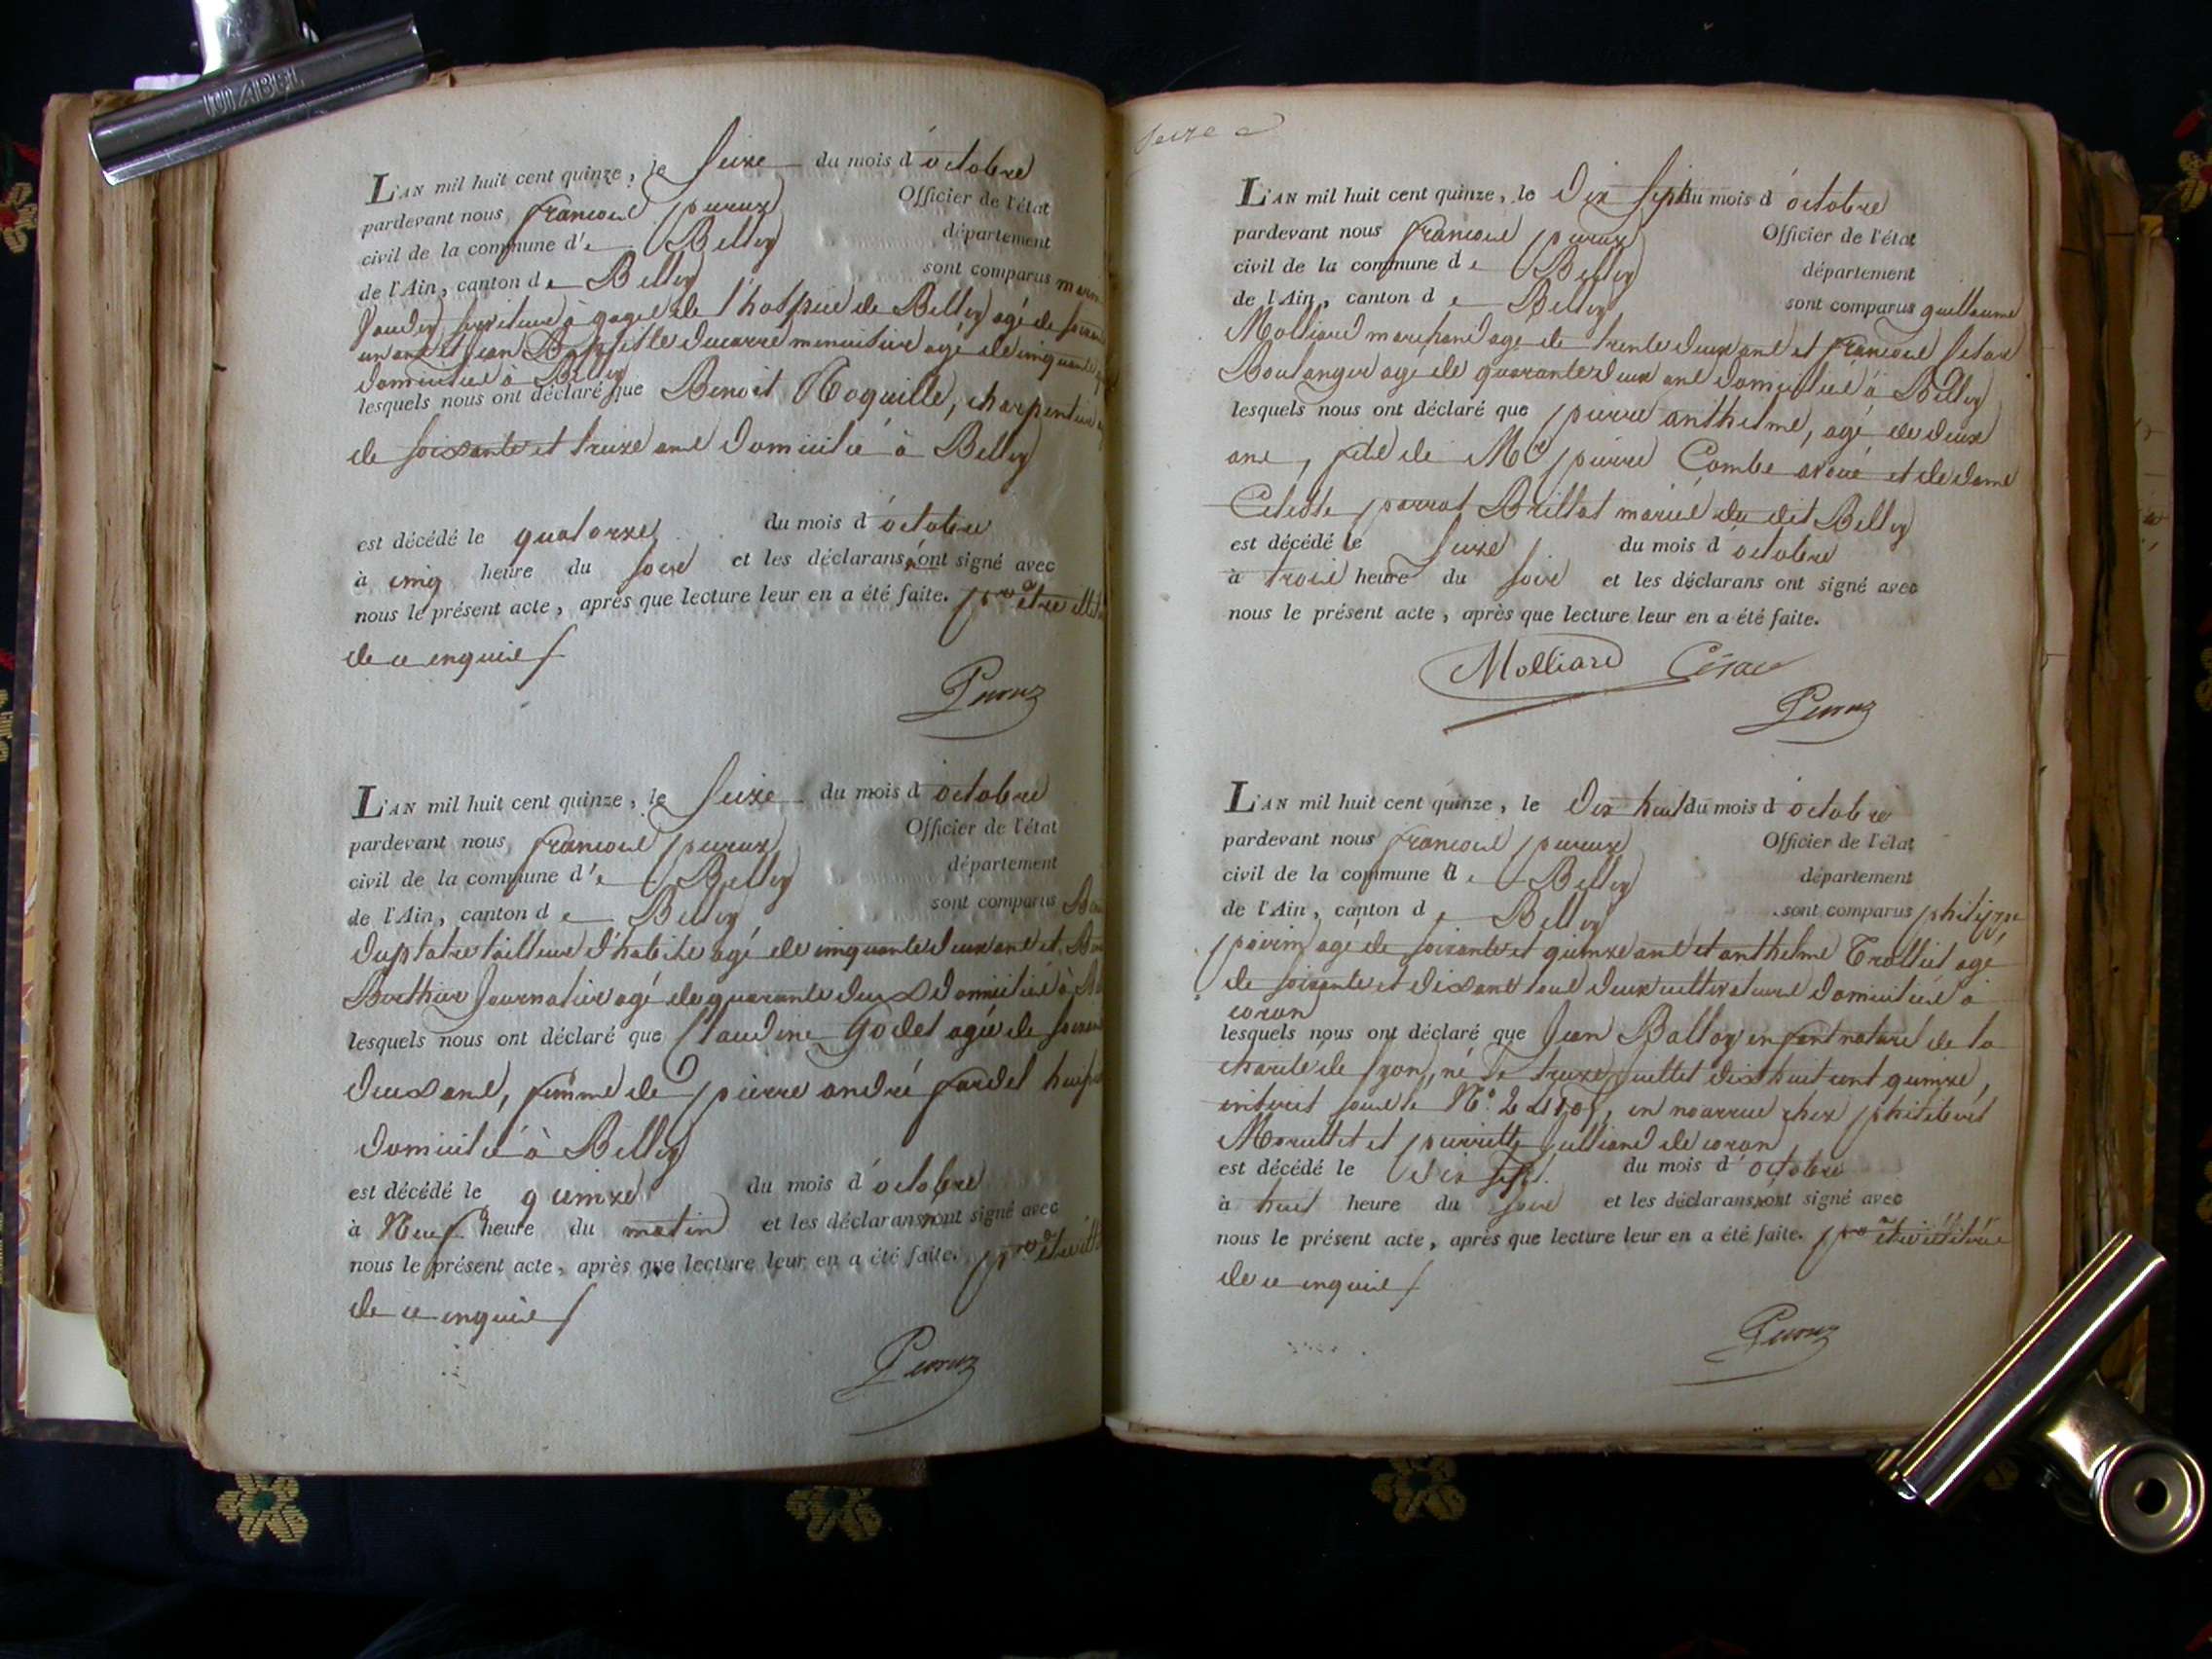 JUIABEL
L'AN mil huit cent quinze, le Seize du mois d'octobre
pardevant nous francois peroux Officier de l'état
civil de la commune d'e Belley département
de l'Ain, canton de Belley sont comparus
à gages de l'hospice de Belley agé de
un ans et jean Baptiste ducarre menuisier agé de cinquante
domiciliés à Belley
lesquels nous ont déclaré que Benoit Roquille, charpentier
de soixante et treize ans domicilié à Belley
est décédé le quatorze du mois d'octobre
à cinq heure du soir et les déclarans n'ont signé avec
nous le présent acte, après que lecture leur en a été faite. pr être
de ce enquis
Peroux
L'AN mil huit cent quinze, le Seize du mois d'octobre
pardevant nous francois peroux Officier de l'état
civil de la commune d'e Belley département
de l'Ain, canton de Belley sont comparus
tailleur d'habits agé de cinquante deux ans et
Berthier Journalier agé de quarante deux domiciliés à
lesquels nous ont déclaré que Claudine Godet agée de
deux ans, femme de pierre andré fardel
domicilié à Belley
est décédé le quinze du mois d'octobre
à Neuf heure du matin et les déclarans n'ont signé avec
nous le présent acte, après que lecture leur en a été faite. pr être
de ce enquis
Peroux
Seize
L'AN mil huit cent quinze, le Dix Sept du mois d'octobre
pardevant nous francois peroux Officier de l'état
civil de la commune de Belley département
de l'Ain, canton de Belley sont comparus guillaume
Molliard marchand agé de trente deux ans et francois
Boulanger agé de quarante deux ans domiciliés à Belley
lesquels nous ont déclaré que pierre anthelme, agé de deux
ans, fils de Me pierre Combe avoué et de dame
Celeste parrat Brillat mariés du dit Belley
est décédé le Seize du mois d'octobre
à trois heure du soir et les déclarans ont signé avec
nous le présent acte, après que lecture leur en a été faite.
Molliard César
Peroux
L'AN mil huit cent quinze, le Dix huit du mois d'octobre
pardevant nous francois peroux Officier de l'état
civil de la commune de Belley département
de l'Ain, canton de Belley sont comparus philippe
agé de soixante et quinze ans et anthelme Trolliet agé
de soixante et dix ans tous deux cultivateurs domiciliés à
coron
lesquels nous ont déclaré que Jean Balloy enfant naturel de la
charité de lyon, né le treize juillet dix huit cent quinze,
inscrit sous le No. en nourrice chez philibert
et pierrette Julliand de coron
est décédé le Dix sept du mois d'octobre
à huit heure du soir et les déclarans n'ont signé avec
nous le présent acte, après que lecture leur en a été faite. pr être
de ce enquis
Peroux